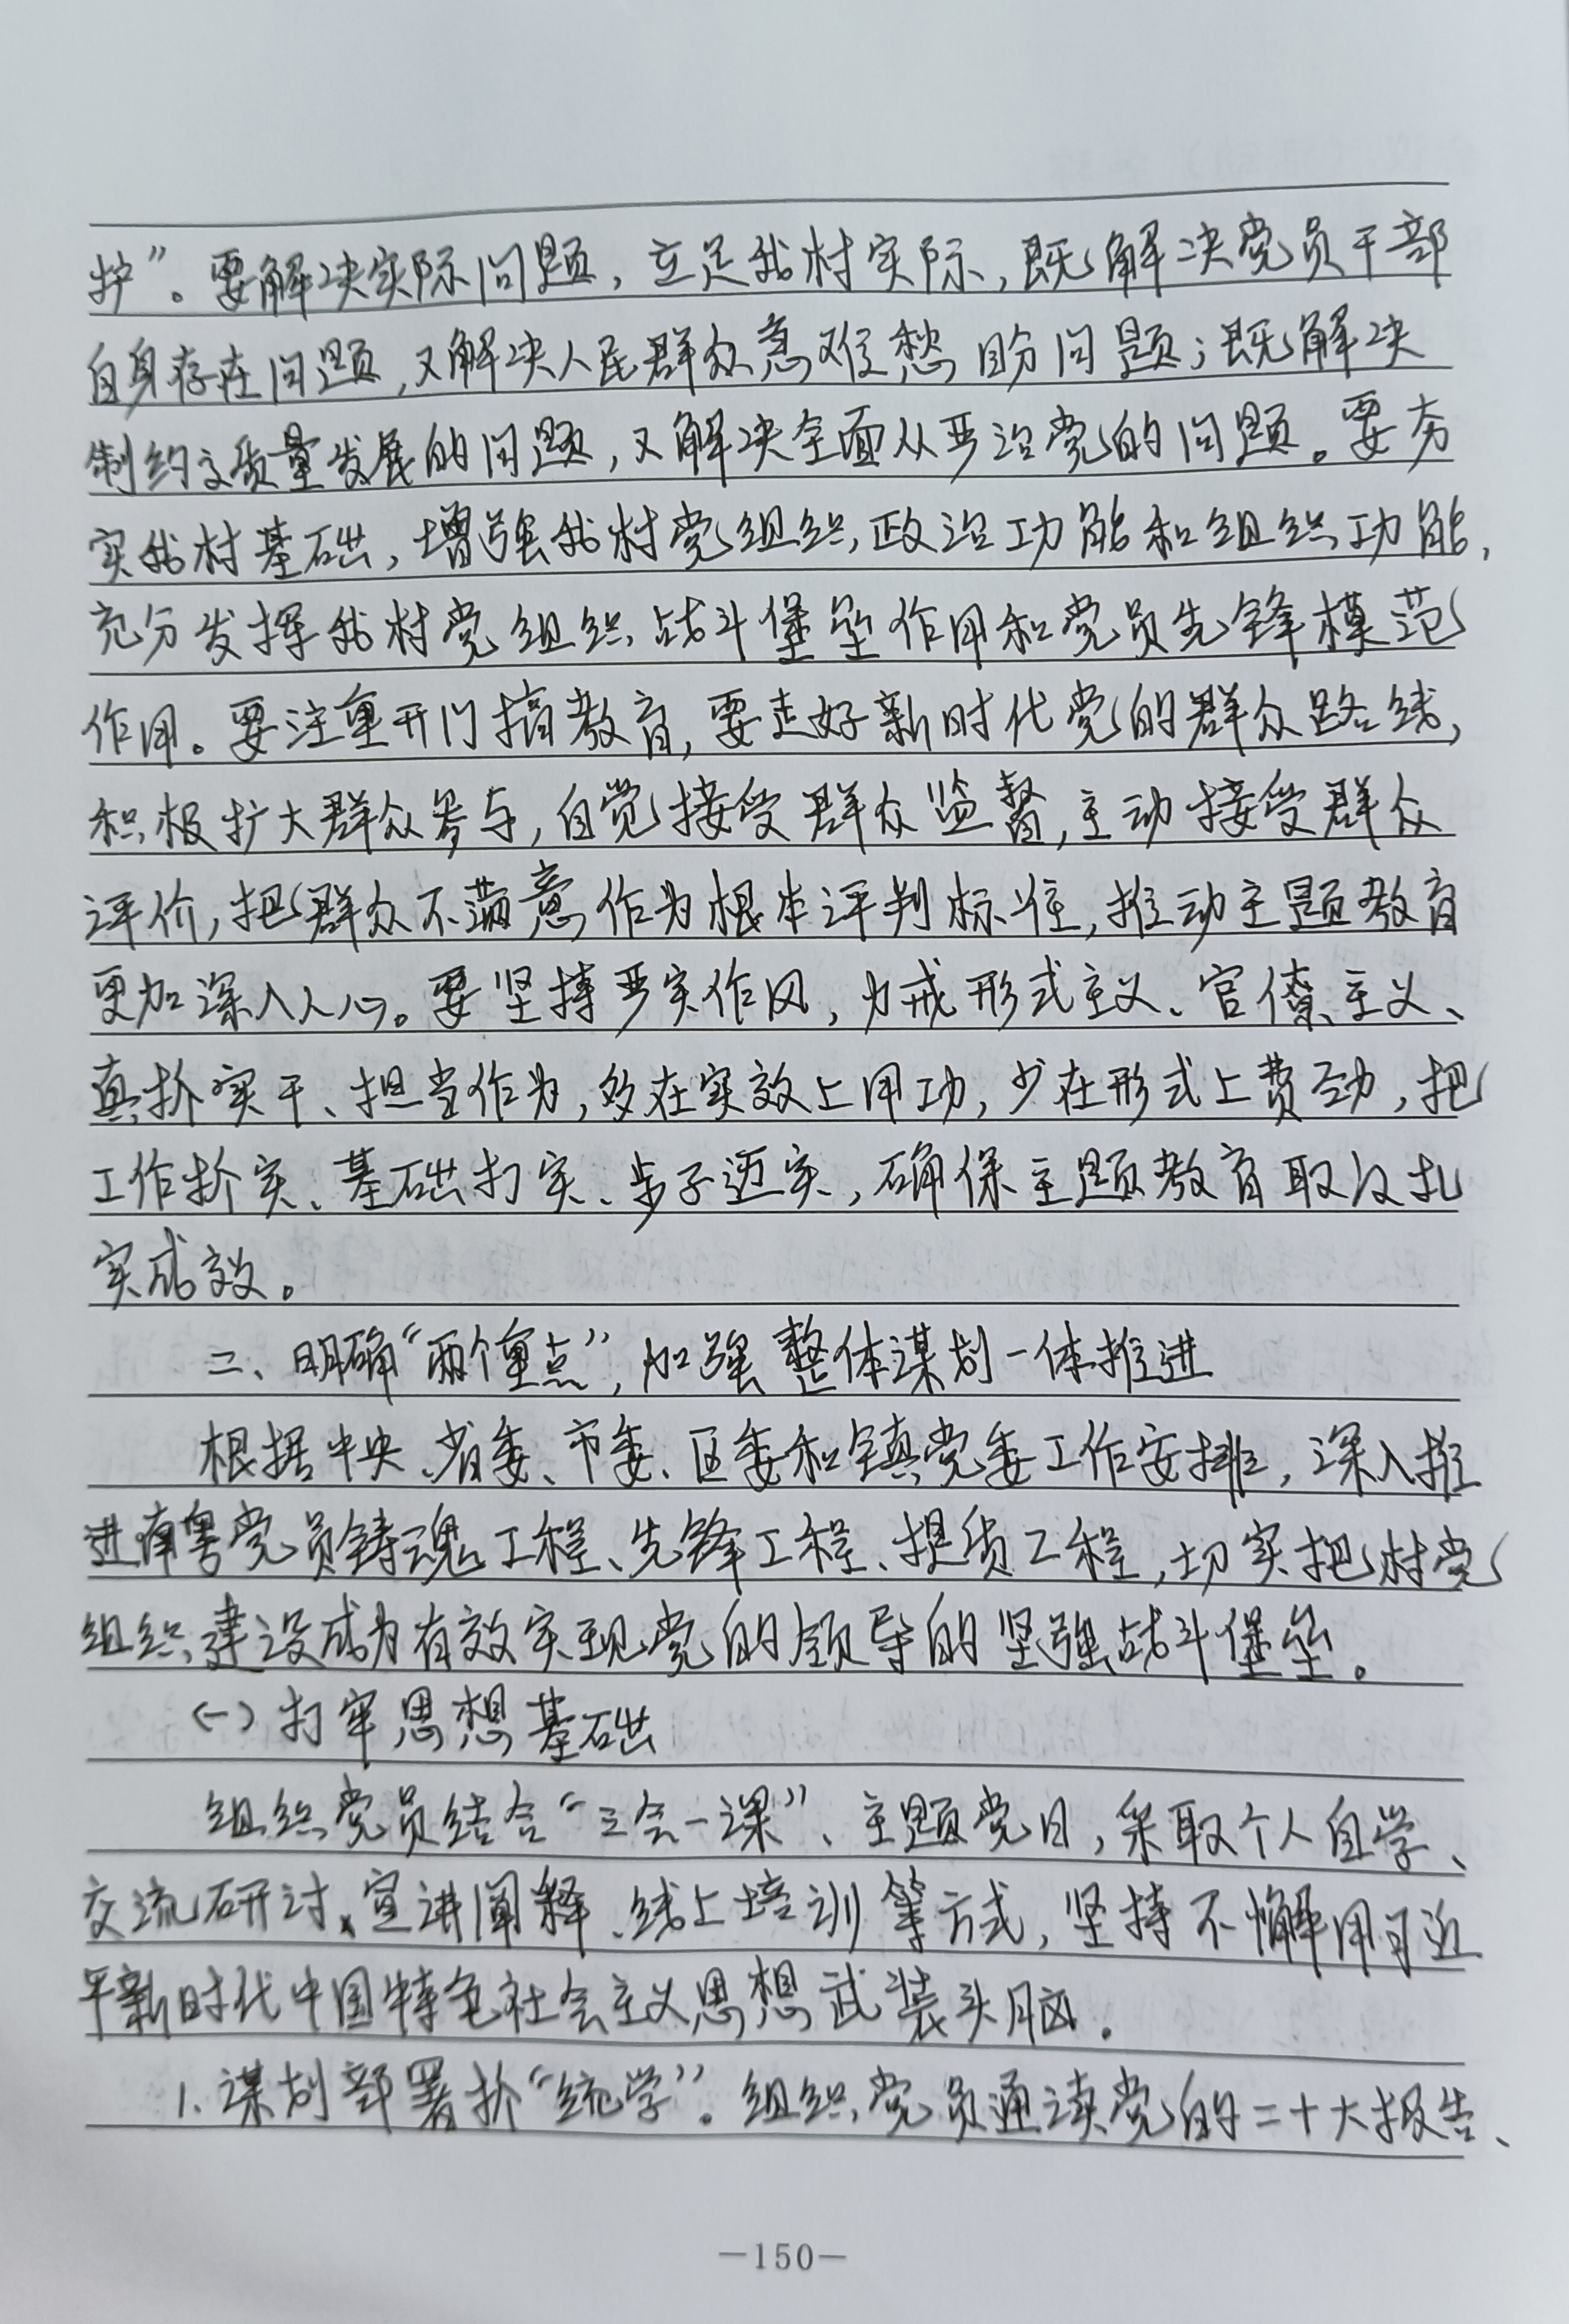 护”。要解决实际问题，立足我村实际，既解决党员干部
自身存在问题，又解决人民群众急难愁盼问题；既解决
制约高质量发展的问题，又解决全面从严治党的问题。要夯
实我村基础，增强我村党组织政治功能和组织功能，
充分发挥我村党组织战斗堡垒作用和党员先锋模范
作用。要注重开门搞教育，要走好新时代党的群众路线，
积极扩大群众参与，自觉接受群众监督，主动接受群众
评价，把群众不满意作为根本评判标准，推动主题教育
更加深入人心。要坚持严实作风，力戒形式主义、官僚主义、
真抓实干、担当作为，多在实效上用功，少在形式上费劲，把
工作抓实、基础打实、步子迈实，确保主题教育取得扎
实成效。
二、明确“两个重点”，加强整体谋划一体推进
根据中央、省委、市委、区委和镇党委工作安排，深入推
进南粤党员铸魂工程、先锋工程、提质工程，切实把村党
组织建设成为有效实现党的领导的坚强战斗堡垒。
(一)打牢思想基础
组织党员结合“三会一课”、主题党日，采取个人自学、
交流研讨、宣讲阐释、线上培训等方式，坚持不懈用习近
平新时代中国特色社会主义思想武装头脑。
1.谋划部署抓“统学”。组织党员通读党的二十大报告、
—150—